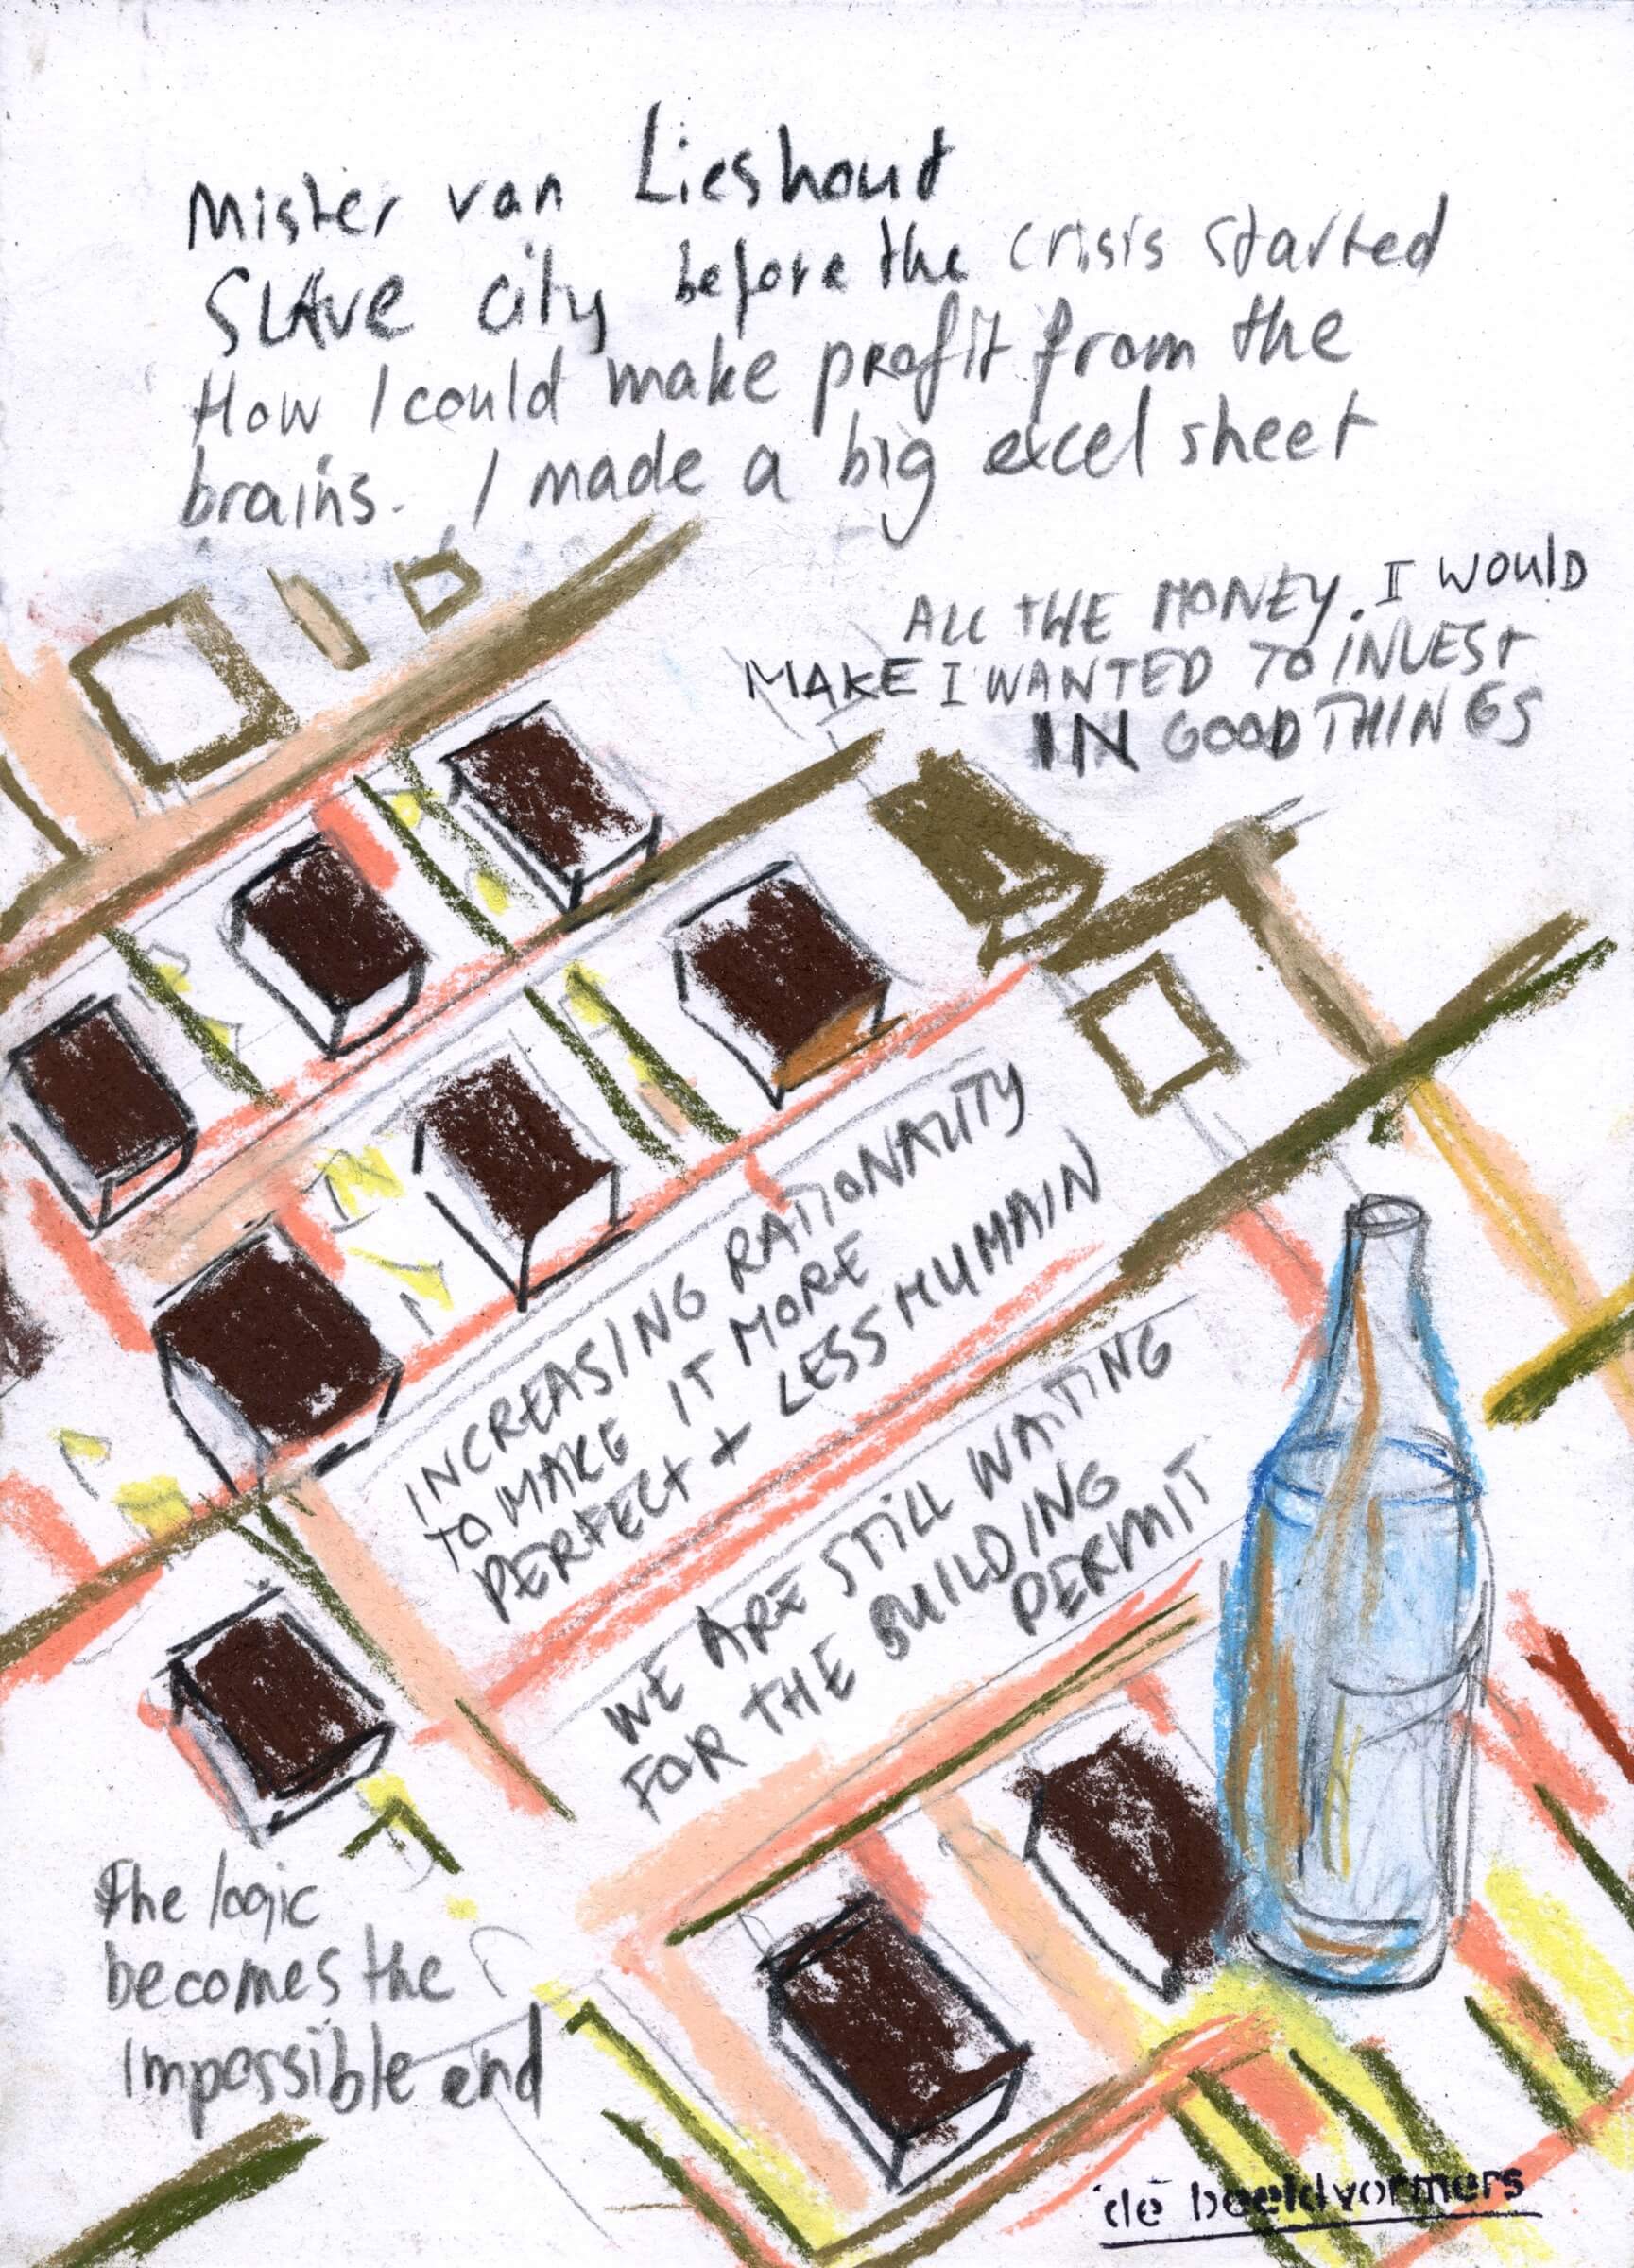 Mister van Lieshout
SLAVE city before the crisis started
How I could make profit from the
brains. I made a big excel sheet
ALL THE MONEY. I WOULD
MAKE I WANTED TO INVEST
IN GOOD THINGS
INCREASING RATIONALITY
TO MAKE IT MORE
PERFECT + LESS HUMAIN
WE ARE STILL WAITING
FOR THE BUILDING
PERMIT
The logic
becomes the
impossible end
de beeldvormers